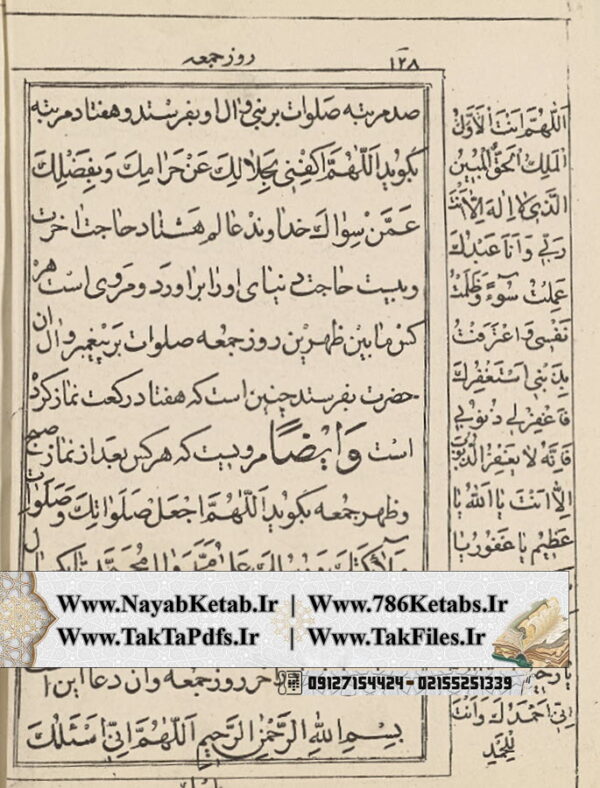 ۱۲۸
روز جمعه
صد مرتبه صلوات بر نبی و ال او بفرستد و هفتاد مرتبه
بکوید اَللّٰهُمَّ اکْفِنی بِحَلالِكَ عَنْ حَرامِكَ وَبِفَضْلِكَ
عَمَّنْ سِواكَ خداوند عالم هشتاد حاجت اخرت
و بیست حاجت دنیای او را براورد و مروی است هر
کس مابین ظهرین روز جمعه صلوات بر پیغمبر و ال ان
حضرت بفرستد چنین است که هفتاد رکعت نماز کرد
است وَایضًا مرویست که هر کس بعد از نماز صبح
و ظهر جمعه بکوید اَللّٰهُمَّ اجْعَل صَلَواتِكَ وَصَلَواتِ
روز جمعه وان دعا این
بِسْمِ اللهِ الرَّحْمٰنِ الرَّحیمِ اَللّٰهُمَّ اِنّی اَسْئَلُكَ
اَللّٰهُمَّ اَنْتَ الْاَوَّلُ
الْمَلِكُ الْحَقُّ الْمُبینُ
الَّذی لا اِلٰهَ اِلّا اَنْتَ
رَبّی وَ اَنَا عَبْدُكَ
عَمِلْتُ سُوٓءً وَ ظَلَمْتُ
نَفْسی وَ اعْتَرَفْتُ
بِذَنْبی اَسْتَغْفِرُكَ
فَاغْفِرْ لی ذُنُوبی
فَاِنَّهُ لا یَغْفِرُ الذُّنُوبَ
اِلّا اَنْتَ یا اَللهُ یا
عَظیمُ یا غَفُورُ یا
اِنّی اَحْمَدُكَ وَ اَنْتَ
لِلْحَمْدِ
Www.NayabKetab.Ir | Www.786Ketabs.Ir
Www.TakTaPdfs.Ir | Www.TakFiles.Ir
09127154424 - 02155251339